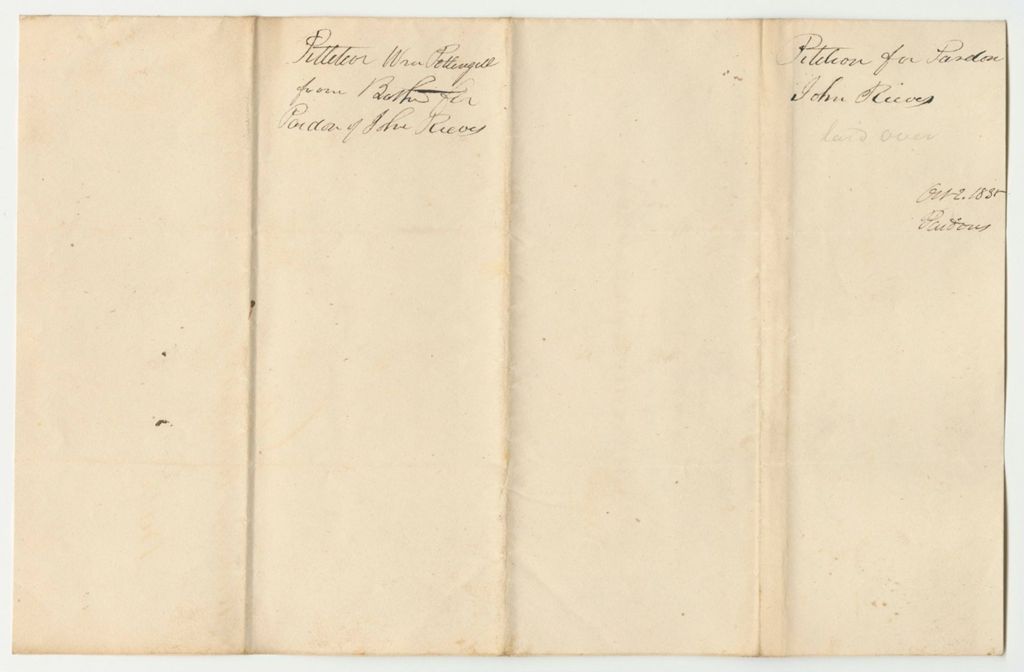 Petition Wm Pettengill
from Bath for
Pardon of John Reeves
Petition for Pardon
John Reeves
laid over
Oct 2. 1835
Pardons